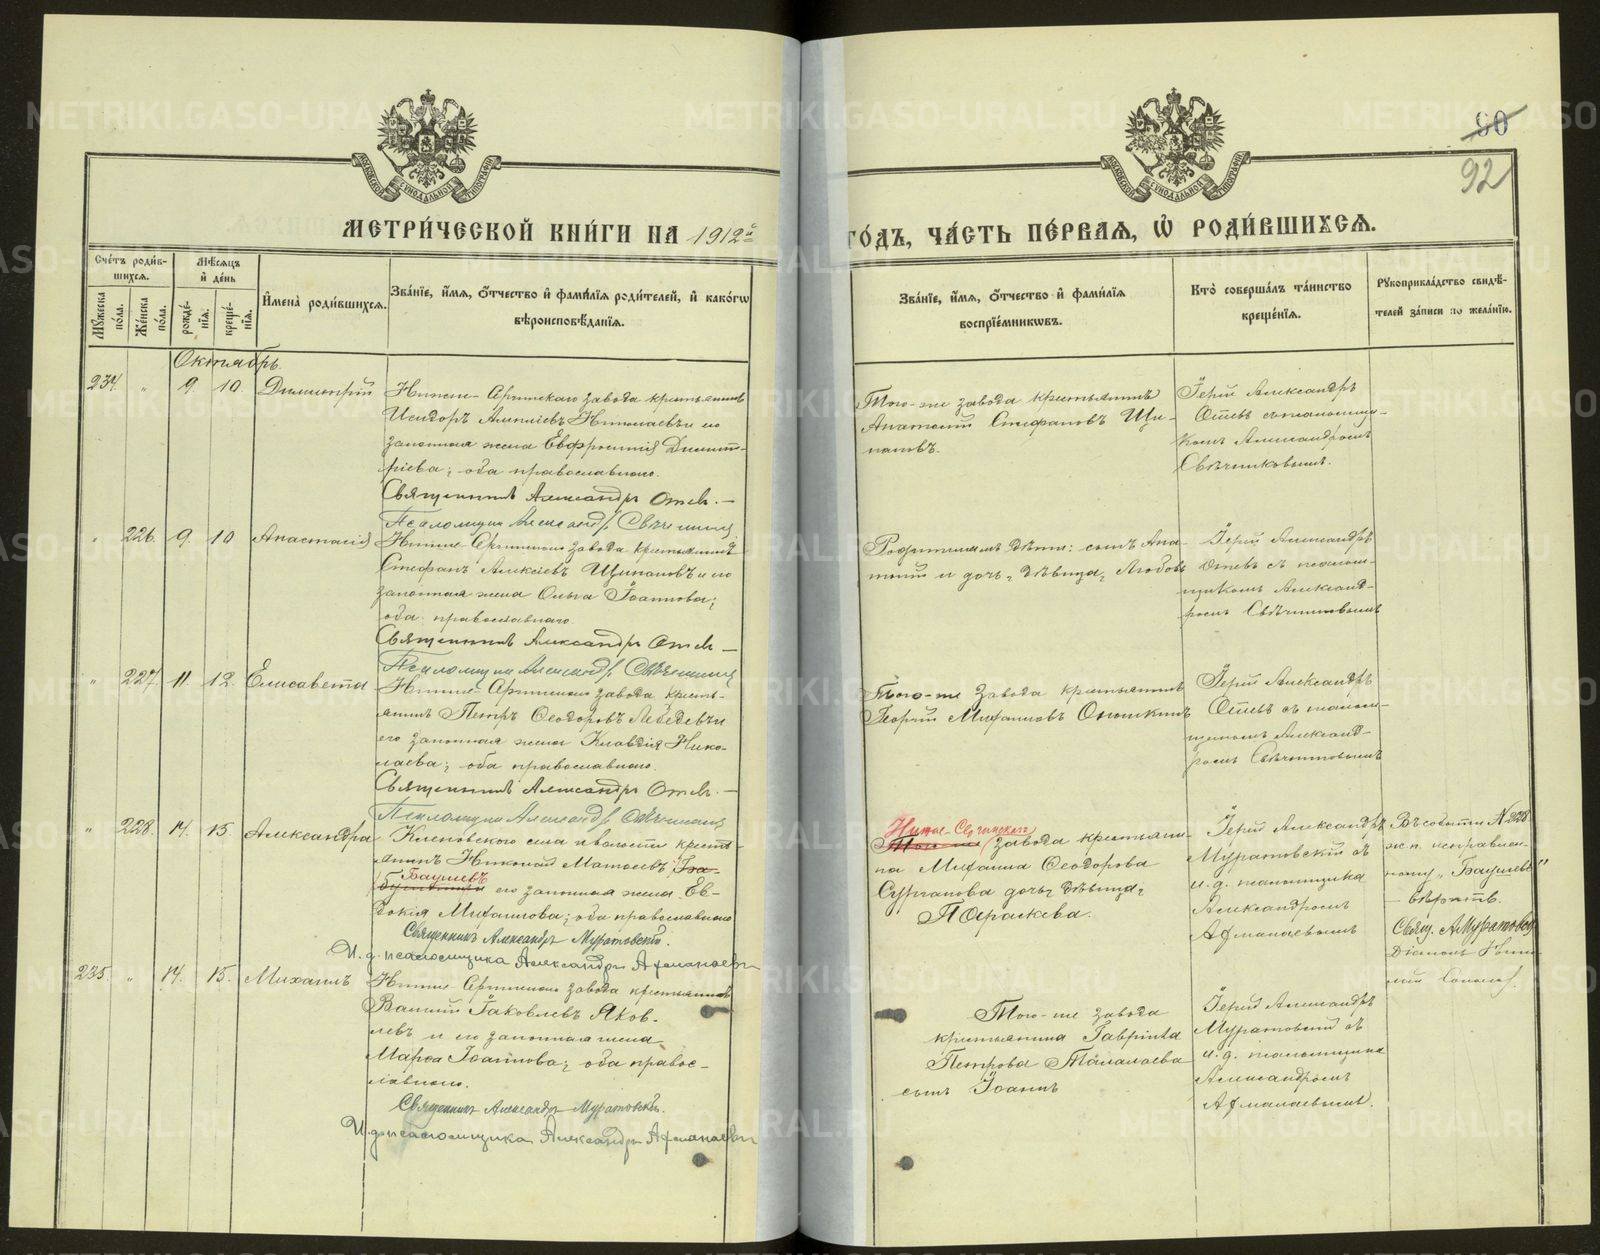 90
92
МЕТРИ́ЧЕСКОЙ КНИ́ГИ НА 1912й
ГО́ДЪ, ЧА́СТЬ ПЕ́РВАЯ, Ѡ҆ РОДИ́ВШИХСЯ.
Сче́тъ роди́в-
шихся.
Мѣ́сяцъ
и҆ де́нь
Мꙋ́жеска
по́ла.
Же́нска
по́ла.
рожде́-
нїя.
креще́-
нїя.
И҆мена̀ роди́вшихся.
Зва́нїе, и҆́мя, ѻ҆́тчество и҆ фамилїя роди́телей, и҆ како́гѡ
вѣроисповѣ́данїя.
Зва́нїе, и҆́мя, ѻ҆́тчество и҆ фами́лїя
воспрїе́мникѡвъ.
Кто̀ соверша́лъ та́инство
креще́нїя.
Рꙋкоприкла́дство свидѣ́-
телей за́писи по жела́нїю.
Октябрь.
234. " 9. 10. Димитрій
Нижне-Сергинскаго завода крестьянинъ
Исидоръ Николаевъ и его
законная жена Евфросинія Димит-
ріева; оба православнаго.
Священникъ Александръ Отевъ.—
Псаломщикъ Александръ Свѣчников
Того-же завода крестьянинъ
Анатолій Стефановъ Щи-
пановъ.
Іерей Александръ
Отевъ съ псаломщи-
комъ Александромъ
Свѣчниковымъ.
" 226. 9. 10 Анастасія
Нижне-Сергинскаго завода крестьянинъ
Стефанъ Алексіевъ Щипановъ и его
законная жена Ольга Іоаннова;
оба православнаго.
Священникъ Александръ Отевъ—
Псаломщикъ Александръ Свѣчников
Родителямъ дѣти: сынъ Ана-
толій и дочь, дѣвица, Любовь
Іерей Александръ
Отевъ съ псалом-
щикомъ Александ-
ромъ Свѣчниковымъ
" 227. 11. 12. Елисавета
Нижне-Сергинскаго завода кресть-
янинъ Петръ Ѳеодоровъ Лебедевъ и
его законная жена Клавдія Нико-
лаева; оба православнаго.
Священникъ Александръ Отевъ.—
Псаломщикъ Александръ Свѣчников
Того-же завода крестьянинъ
Георгій Михаиловъ Онюшкинъ
Іерей Александръ
Отевъ съ псалом-
щикомъ Александ-
ромъ Свѣчниковымъ
" 228. 14. 15. Александра
Кленовского села и волости кресть-
янинъ Николай Матѳеевъ
Баушевъ
его законная жена Ев-
докія Михаилова; оба православнаго
Священникъ Александръ Муратовскій.
И. д. псаломщика Александръ Афанасьевъ
Нижне-Сергинскаго
Того-же завода крестьяни-
на Михаила Ѳеодорова
Сурганова дочь, дѣвица,
Параскева.
Іерей Александръ
Муратовскій съ
и. д. псаломщика
Александромъ
Афанасьевымъ
Въ событіи № 228
исправлен-
ному „Баушевъ"
— вѣрить.
Свящ. А Муратовскій
Діаконъ
235. " 14. 15. Михаилъ
Нижне-Сергинскаго завода крестьянинъ
Василій Іаковлевъ Яков-
левъ и его законная жена
Марѳа Іоаннова; оба правос-
лавнаго.
Священникъ Александръ Муратовскій.
И. д. псаломщика Александръ Афанасьевъ
Того-же завода
крестьянина Гавріила
Петрова Талалаева
сынъ Іоаннъ
Іерей Александръ
Муратовскій съ
и. д. псаломщика
Александромъ
Афанасьевымъ.